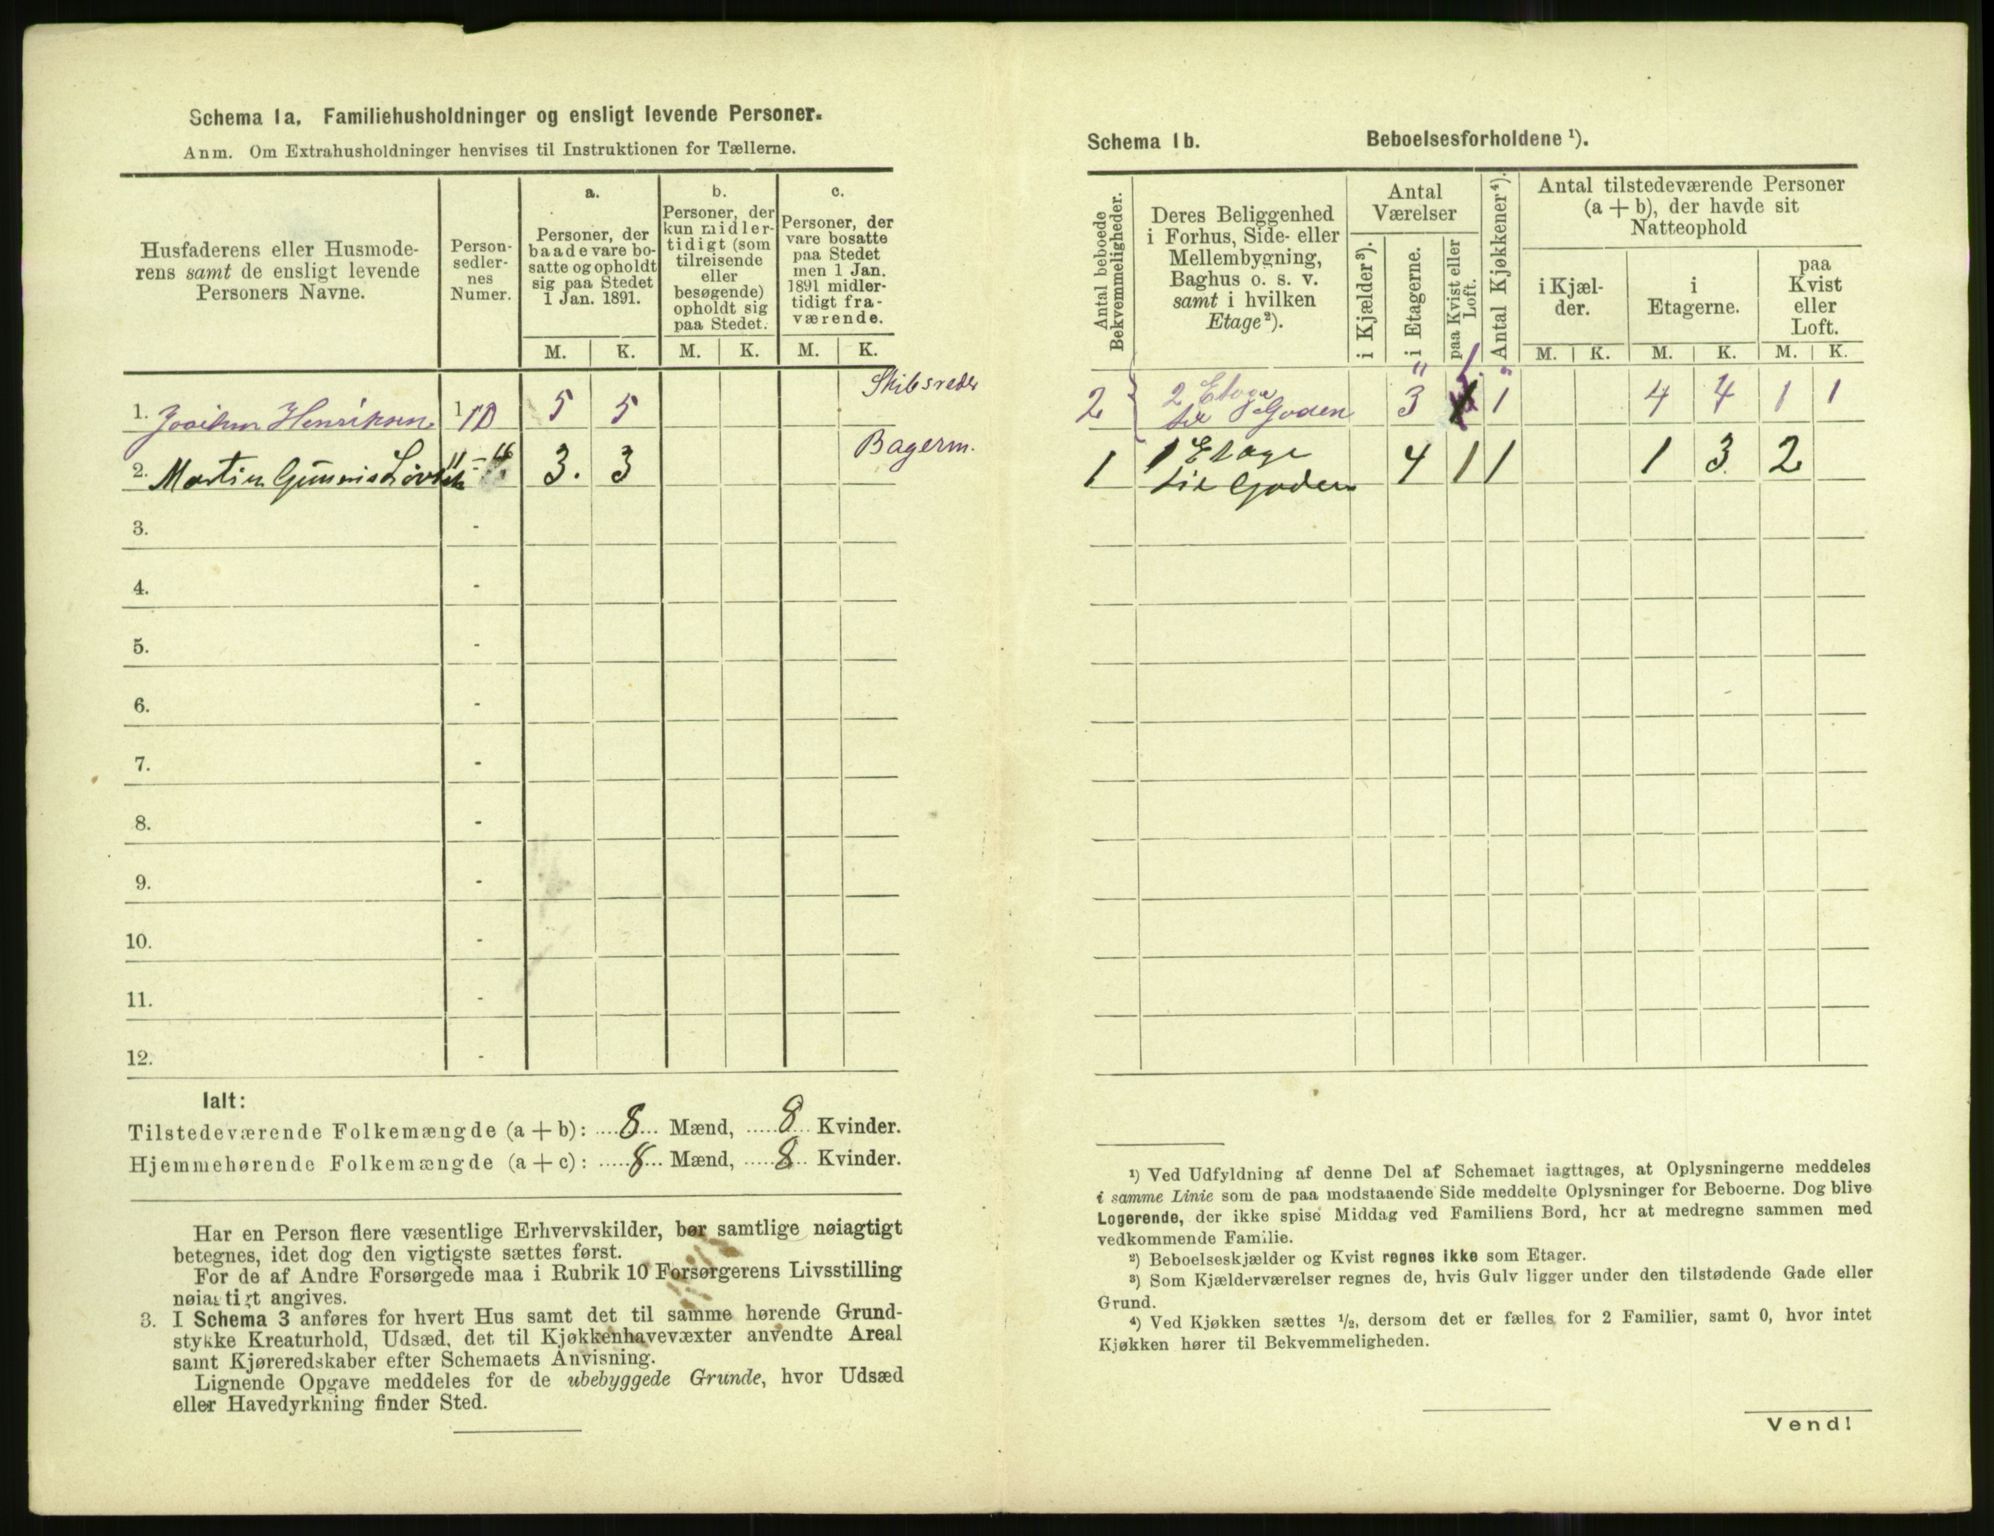 Schema 1a. Familiehusholdninger og ensligt levende Personer.
Anm. Om Extrahusholdninger henvises til Instruktionen for Tællerne.
Husfaderens eller Husmode-
rens samt de ensligt levende
Personers Navne.
Person-
sedler-
nes
Numer.
a.
Personer, der
baade vare bo-
satte og opholdt
sig paa Stedet
1 Jan. 1891.
b.
Personer, der
kun midler-
tidigt (som
tilreisende
eller
besøgende)
opholdt sig
paa Stedet.
c.
Personer, der
vare bosatte
paa Stedet
men 1 Jan.
1891 midler-
tidigt fra-
værende.
M. K. M. K. M. K.
Skibsreder
1. Joachim Henriksen 1-10 5 5
Bagerm.
2. Martin 11-16 3. 3
3. -
4. -
5. -
6. -
7. -
8. -
9. -
10. -
11. -
12. -
Ialt:
Tilstedeværende Folkemængde (a + b): 8 Mænd, 8 Kvinder.
Hjemmehørende Folkemængde (a + c): 8 Mænd, 8 Kvinder.
Har en Person flere væsentlige Erhvervskilder, bør samtlige nøiagtigt
betegnes, idet dog den vigtigste sættes først.
For de af Andre Forsørgede maa i Rubrik 10 Forsørgerens Livsstilling
nøiagtigt angives.
3. I Schema 3 anføres for hvert Hus samt det til samme hørende Grund-
stykke Kreaturhold, Udsæd, det til Kjøkkenhavevæxter anvendte Areal
samt Kjøreredskaber efter Schemaets Anvisning.
Lignende Opgave meddeles for de ubebyggede Grunde, hvor Udsæd
eller Havedyrkning finder Sted.
Schema 1b. Beboelsesforholdene ¹).
Antal beboede
Bekvemmeligheder.
Deres Beliggenhed
i Forhus, Side- eller
Mellembygning,
Baghus o. s. v.
samt i hvilken
Etage²).
Antal
Værelser
i Kjælder³).
i Etagerne.
paa Kvist eller
Loft.
Antal Kjøkkener⁴).
Antal tilstedeværende Personer
(a + b), der havde sit
Natteophold
i Kjæl-
der.
i
Etagerne.
paa
Kvist
eller
Loft.
M. K. M. K. M. K.
2 2 Etage
til Gaden 3 1 1 4 4 1 1
1 1 Etage
til Gaden 4 1 1 1 3 2
¹) Ved Udfyldning af denne Del af Schemaet iagttages, at Oplysningerne meddeles
i samme Linie som de paa modstaaende Side meddelte Oplysninger for Beboerne. Dog blive
Logerende, der ikke spise Middag ved Familiens Bord, her at medregne sammen med
vedkommende Familie.
²) Beboelseskjælder og Kvist regnes ikke som Etager.
³) Som Kjælderværelser regnes de, hvis Gulv ligger under den tilstødende Gade eller
Grund.
⁴) Ved Kjøkken sættes ½, dersom det er fælles for 2 Familier, samt 0, hvor intet
Kjøkken hører til Bekvemmeligheden.
Vend!